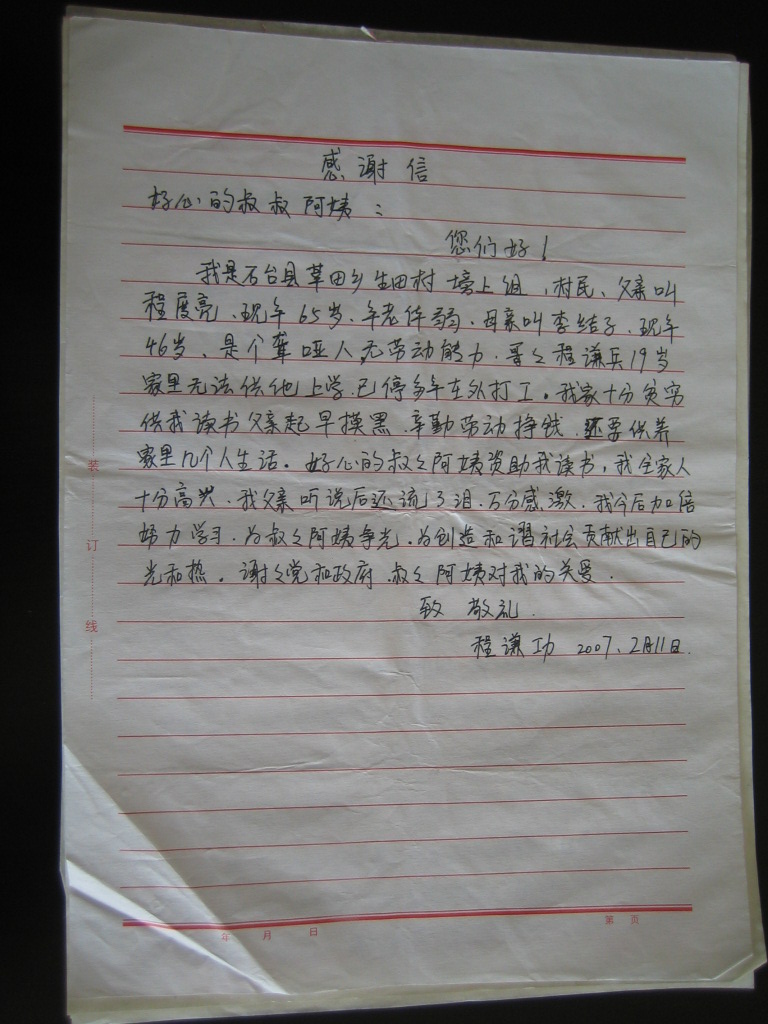 感谢信
好心的叔叔阿姨：
您们好！
我是石台县草田乡生田村塝上组，村民、父亲叫
程度亮、现年65岁、年老体弱、母亲叫李结子、现年
46岁、是个聋哑人，无劳动能力、哥々程谦兵19岁
家里无法供他上学、已停多年在外打工。我家十分贫穷
供我读书父亲起早摸黑、辛勤劳动挣钱、还要供养
家里几个人生活。好心的叔々阿姨资助我读书，我全家人
十分高兴、我父亲听说后还流了泪、万分感激、我今后加倍
努力学习、为叔々阿姨争光、为创造和谐社会贡献出自己的
光和热。谢々党和政府、叔々阿姨对我的关爱.
致 敬礼.
程谦功 2007、2月11日.
装
订
线
年 月 日
第 页